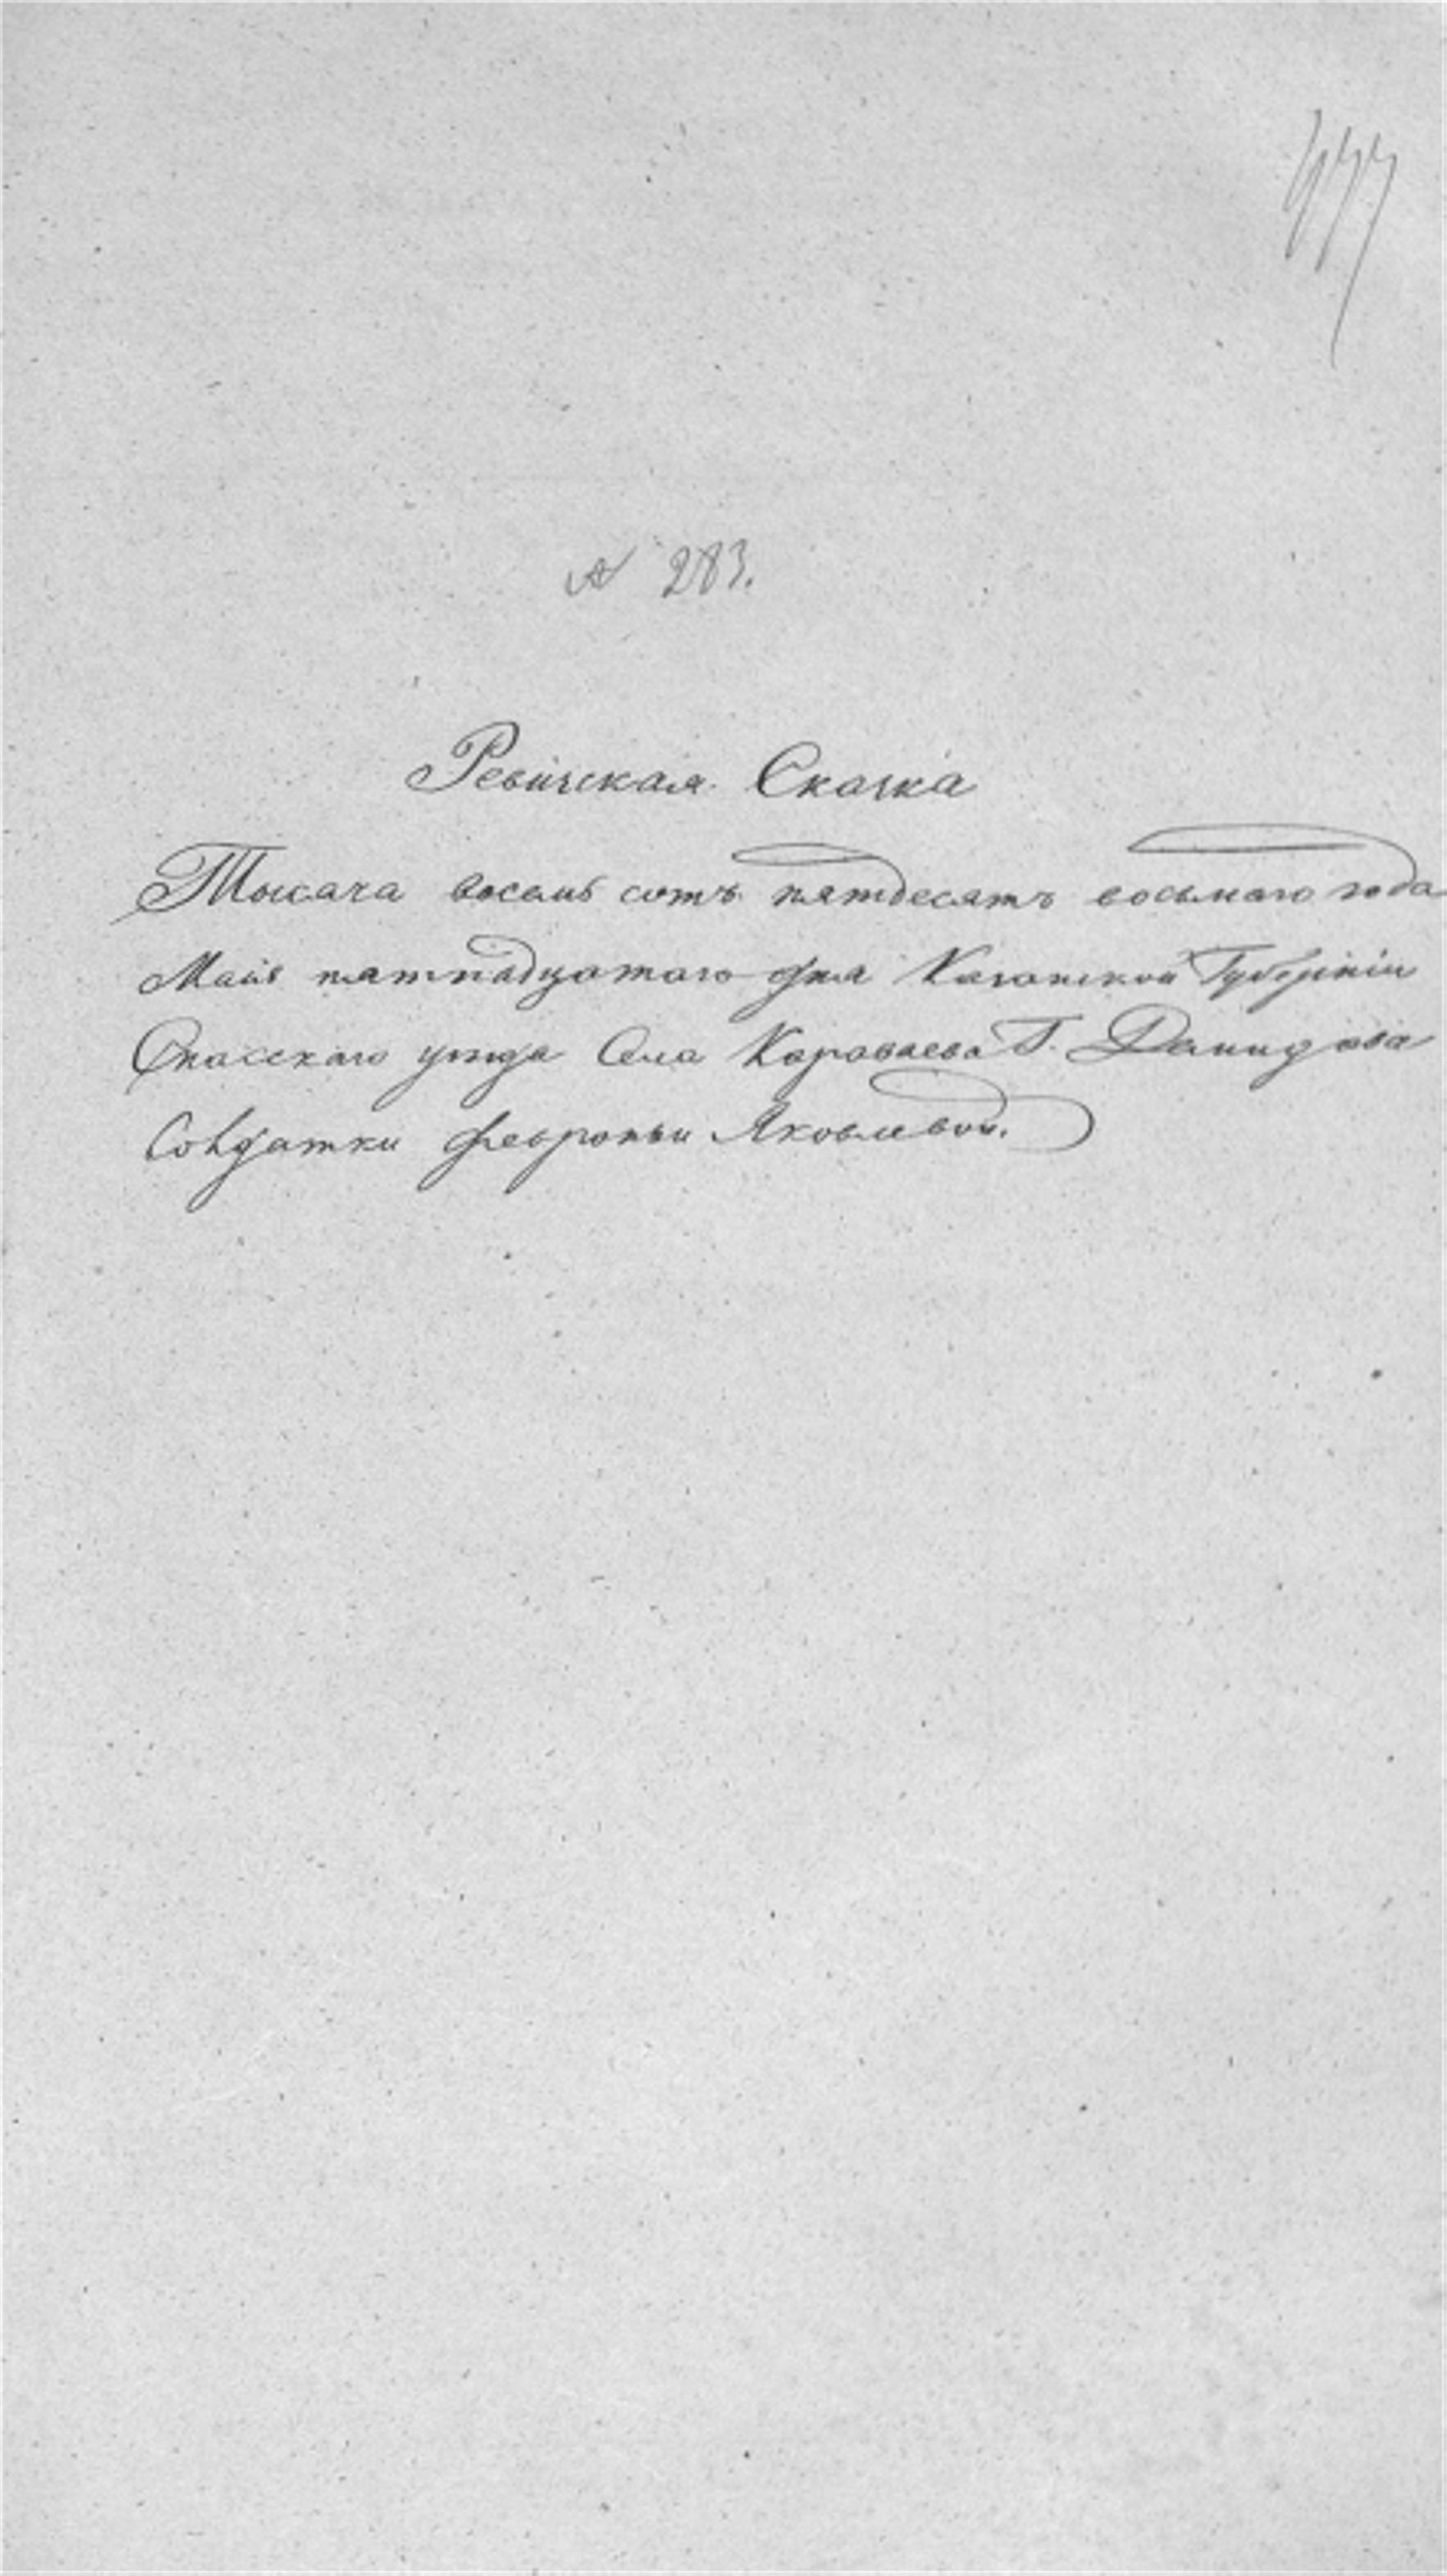 447
№ 283.
Ревижская Сказка
Тысяча восемь сотъ пятдесятъ восьмаго года
Маія пятнадцатаго дня Казанской Губерніи
Спасскаго уѣзда Села Караваева Г. Демидова
Солдатки Февроньи Яковлевой.